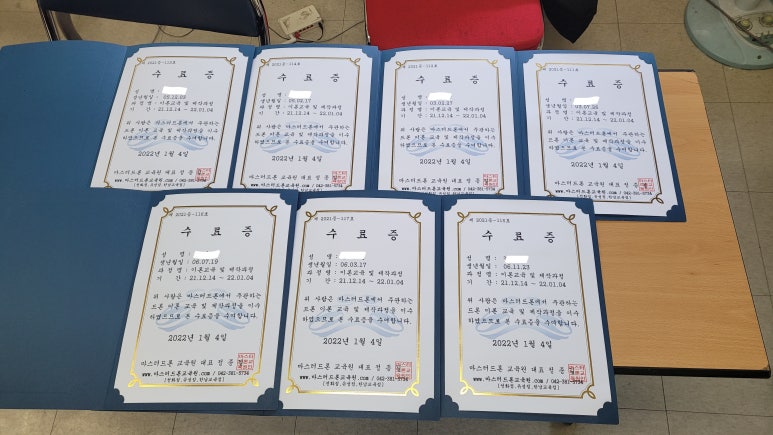 수 료 증
성 명 :
생년월일 :
과 정 명 : 이론교육 및 제작과정
기 간 : 21.12.14 ~ 22.01.04
위 사람은 마스터드론에서 주관하는
드론 이론 교육 및 제작과정을 이수
하였으므로 본 수료증을 수여합니다.
2022년 1월 4일
마스터드론교육원 대표 정 준
제 2021중-114호
수 료 증
성 명 :
생년월일 : 06.02.17
과 정 명 : 이론교육 및 제작과정
기 간 : 21.12.14 ~ 22.01.04
위 사람은 마스터드론에서 주관하는
드론 이론 교육 및 제작과정을 이수
하였으므로 본 수료증을 수여합니다.
2022년 1월 4일
마스터드론교육원 대표 정 준
수 료 증
성 명 :
생년월일 :
과 정 명 : 이론교육 및 제작과정
기 간 : 21.12.14 ~ 22.01.04
위 사람은 마스터드론에서 주관하는
드론 이론 교육 및 제작과정을 이수
하였으므로 본 수료증을 수여합니다.
2022년 1월 4일
마스터드론교육원 대표 정 준
수 료 증
성 명 :
생년월일 :
과 정 명 : 이론교육 및 제작과정
기 간 : 21.12.14 ~ 22.01.04
위 사람은 마스터드론에서 주관하는
드론 이론 교육 및 제작과정을 이수
하였으므로 본 수료증을 수여합니다.
2022년 1월 4일
마스터드론교육원 대표 정 준
제 2021중-116호
수 료 증
성 명 :
생년월일 : 06.07.19
과 정 명 : 이론교육 및 제작과정
기 간 : 21.12.14 ~ 22.01.04
위 사람은 마스터드론에서 주관하는
드론 이론 교육 및 제작과정을 이수
하였으므로 본 수료증을 수여합니다.
2022년 1월 4일
마스터드론 교육원 대표 정 준
www.마스터드론교육원.com / 042-381-5734
제 2021중-117호
수 료 증
성 명 :
생년월일 : 06.03.17
과 정 명 : 이론교육 및 제작과정
기 간 : 21.12.14 ~ 22.01.04
위 사람은 마스터드론에서 주관하는
드론 이론 교육 및 제작과정을 이수
하였으므로 본 수료증을 수여합니다.
2022년 1월 4일
마스터드론 교육원 대표 정 준
www.마스터드론교육원.com / 042-381-5734
수 료 증
성 명 :
생년월일 : 06.11.23
과 정 명 : 이론교육 및 제작과정
기 간 : 21.12.14 ~ 22.01.04
위 사람은 마스터드론에서 주관하는
드론 이론 교육 및 제작과정을 이수
하였으므로 본 수료증을 수여합니다.
2022년 1월 4일
마스터드론 교육원 대표 정 준
www.마스터드론교육원.com / 042-381-5734